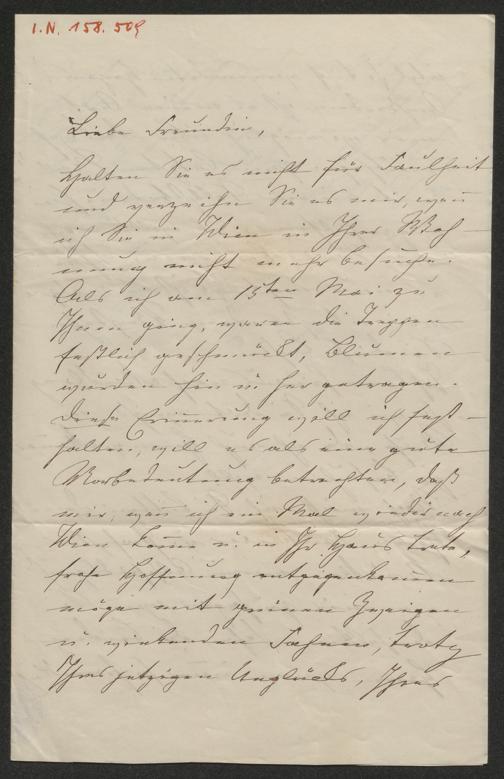 I.N. 158.509
Liebe Freundin,
Halten Sie es nicht für Faulheit
und verzeihn Sie es mir, wen̅
ich Sie in Wien in Ihrer Woh-
nung nicht mehr besuche.
Als ich am 15ten Mai zu
Ihnen ging, waren die Treppen
festlich geschmückt, Blumen
wurden hin u. her getragen.
Diese Erinnerung will ich fest-
halten, will es als eine gute
Vorbedeutung betrachten, daß
mir, wen̅ ich ein Mal wieder nach
Wien kom̅e u. in Ihr Haus trete,
frohe Hoffnung entgegenkommen
möge mit grünen Zweigen
u. winkenden Fahnen, trotz
Ihres jetzigen Unglücks, Ihres